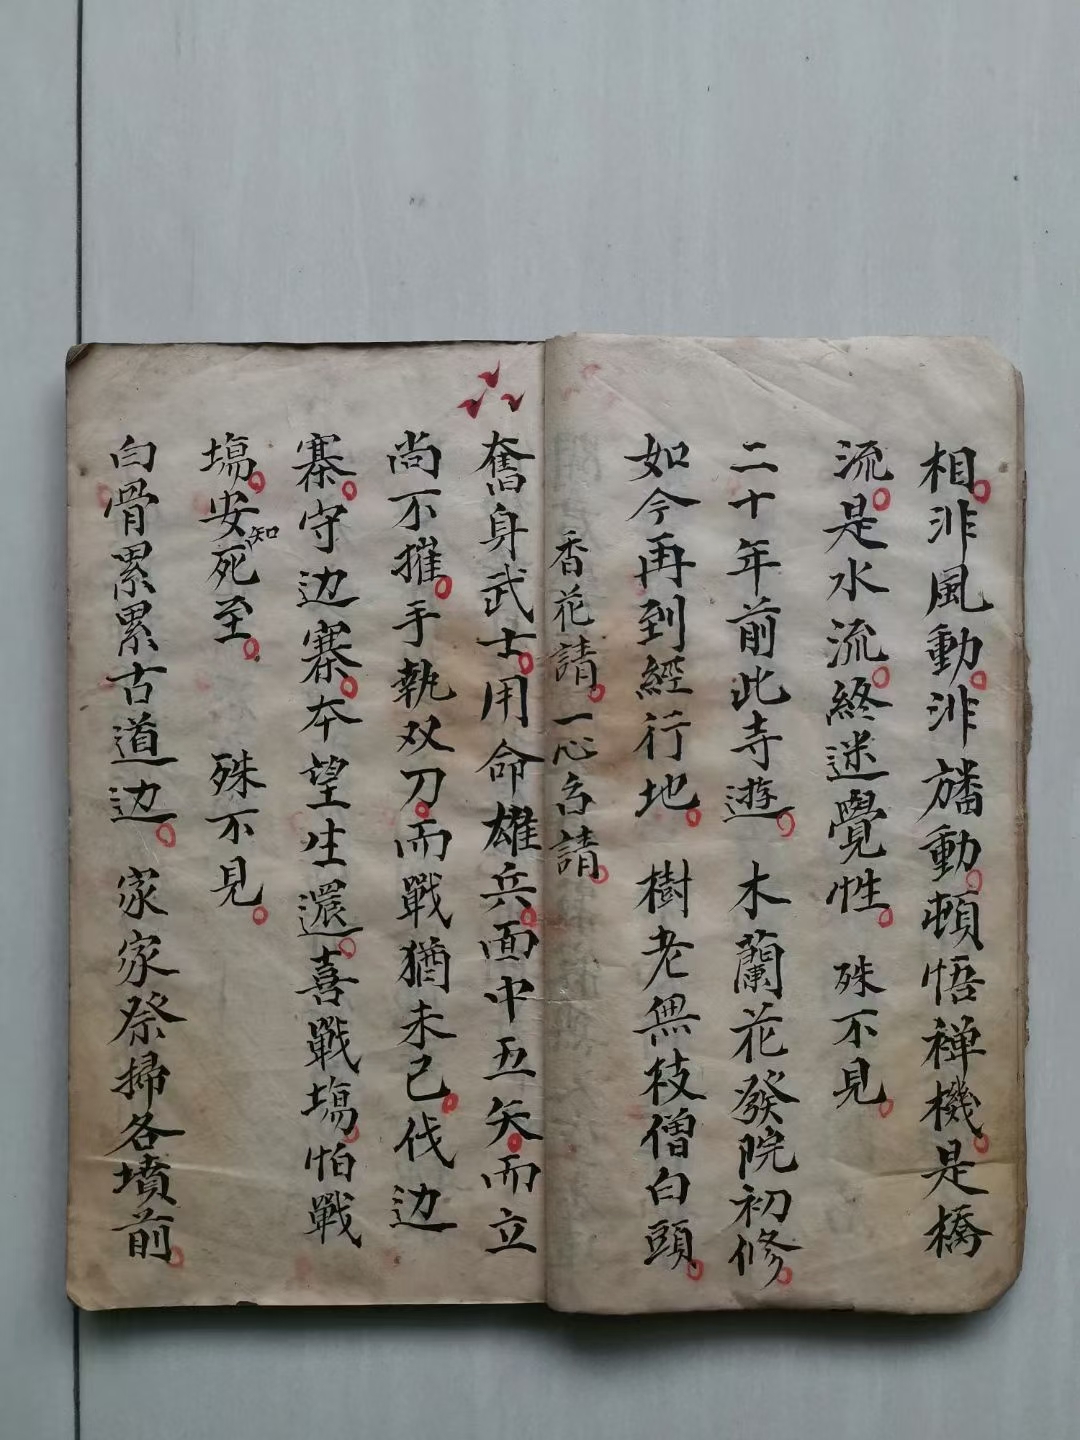 相。非風動。非旛動。頓悟禅機。是橋
流。是水流。終迷覺性。殊不見。
二十年前此寺遊。木蘭花發院初修。
如今再到經行地。樹老無枝僧白頭。
香花請。一心召請。
奮身武士。用命雄兵。面中五矢。而立
尚不摧。手執双刀。而戰猶未已。伐边
寨。守边寨。本望生還。喜戰塲。怕戰
塲。安知死至。殊不見。
白骨累累古道边。家家祭掃各墳前。